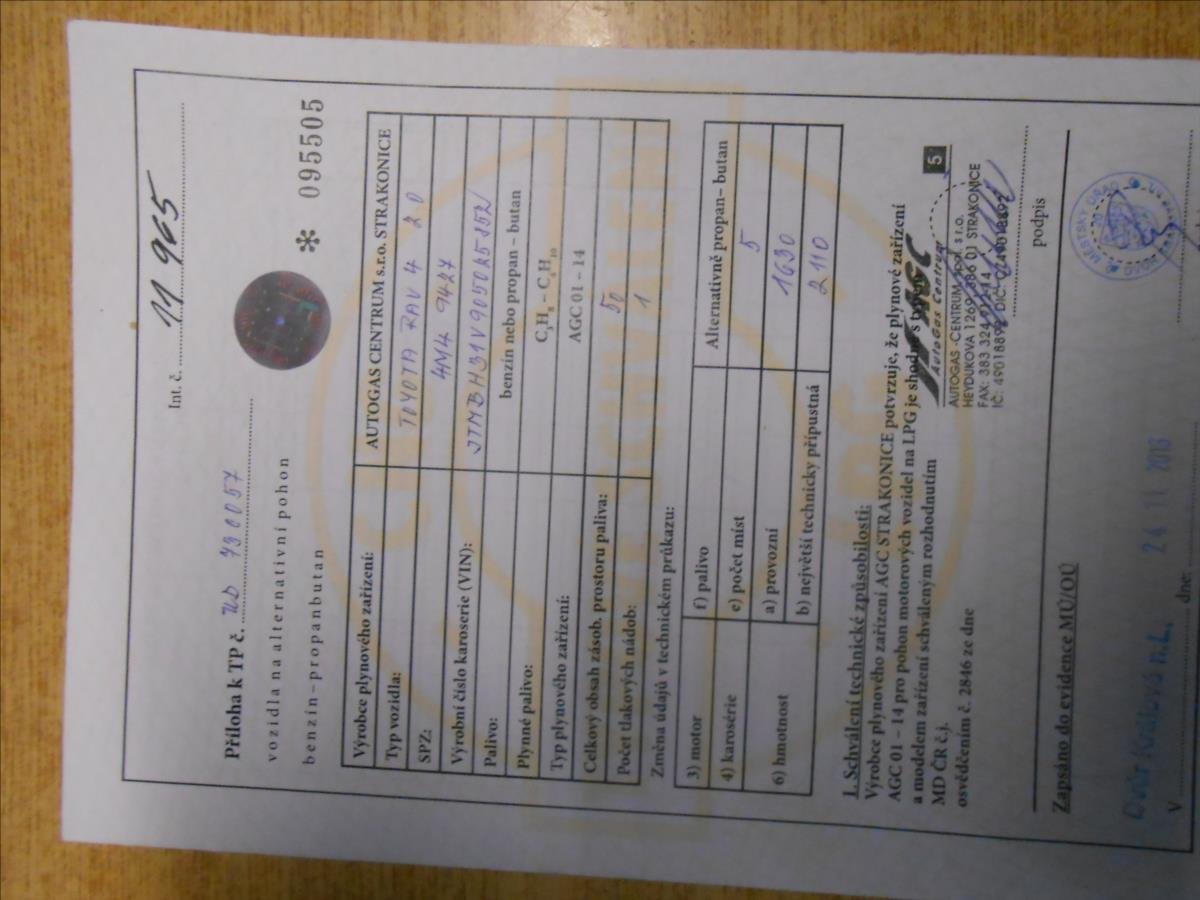 Int. č. 11 965
Příloha k TP č. UD 730057
vozidla na alternativní pohon
benzín – propanbutan * 095505
Výrobce plynového zařízení: AUTOGAS CENTRUM s.r.o. STRAKONICE
Typ vozidla: TOYOTA RAV 4 2.0
SPZ: 4M4 9427
Výrobní číslo karoserie (VIN): JTMBH31V905025852
Palivo: benzín nebo propan – butan
Plynné palivo: C3H8 – C4H10
Typ plynového zařízení: AGC 01 – 14
Celkový obsah zásob. prostoru paliva: 50
Počet tlakových nádob: 1
Změna údajů v technickém průkazu:
3) motor f) palivo Alternativně propan– butan
4) karosérie e) počet míst 5
6) hmotnost a) provozní 1630
b) největší technicky přípustná 2110
1. Schválení technické způsobilosti:
Výrobce plynového zařízení AGC STRAKONICE potvrzuje, že plynové zařízení
AGC 01 – 14 pro pohon motorových vozidel na LPG je shodné s typem
a modelem zařízení schváleným rozhodnutím
MD ČR č.j.
osvědčením č. 2846 ze dne
AGC
AutoGas Centrum
5
AUTOGAS -CENTRUM spol. s r.o.
HEYDUKOVA 1269, 386 01 STRAKONICE
FAX: 383 324
IČ: 49018892, DIČ: CZ49018892
podpis
Zapsáno do evidence MÚ/OÚ
MĚSTSKÝ ÚŘAD
Dvůr Králové n.L.
V dne: 24 11 2016
SCHVÁLENÍ
LPG